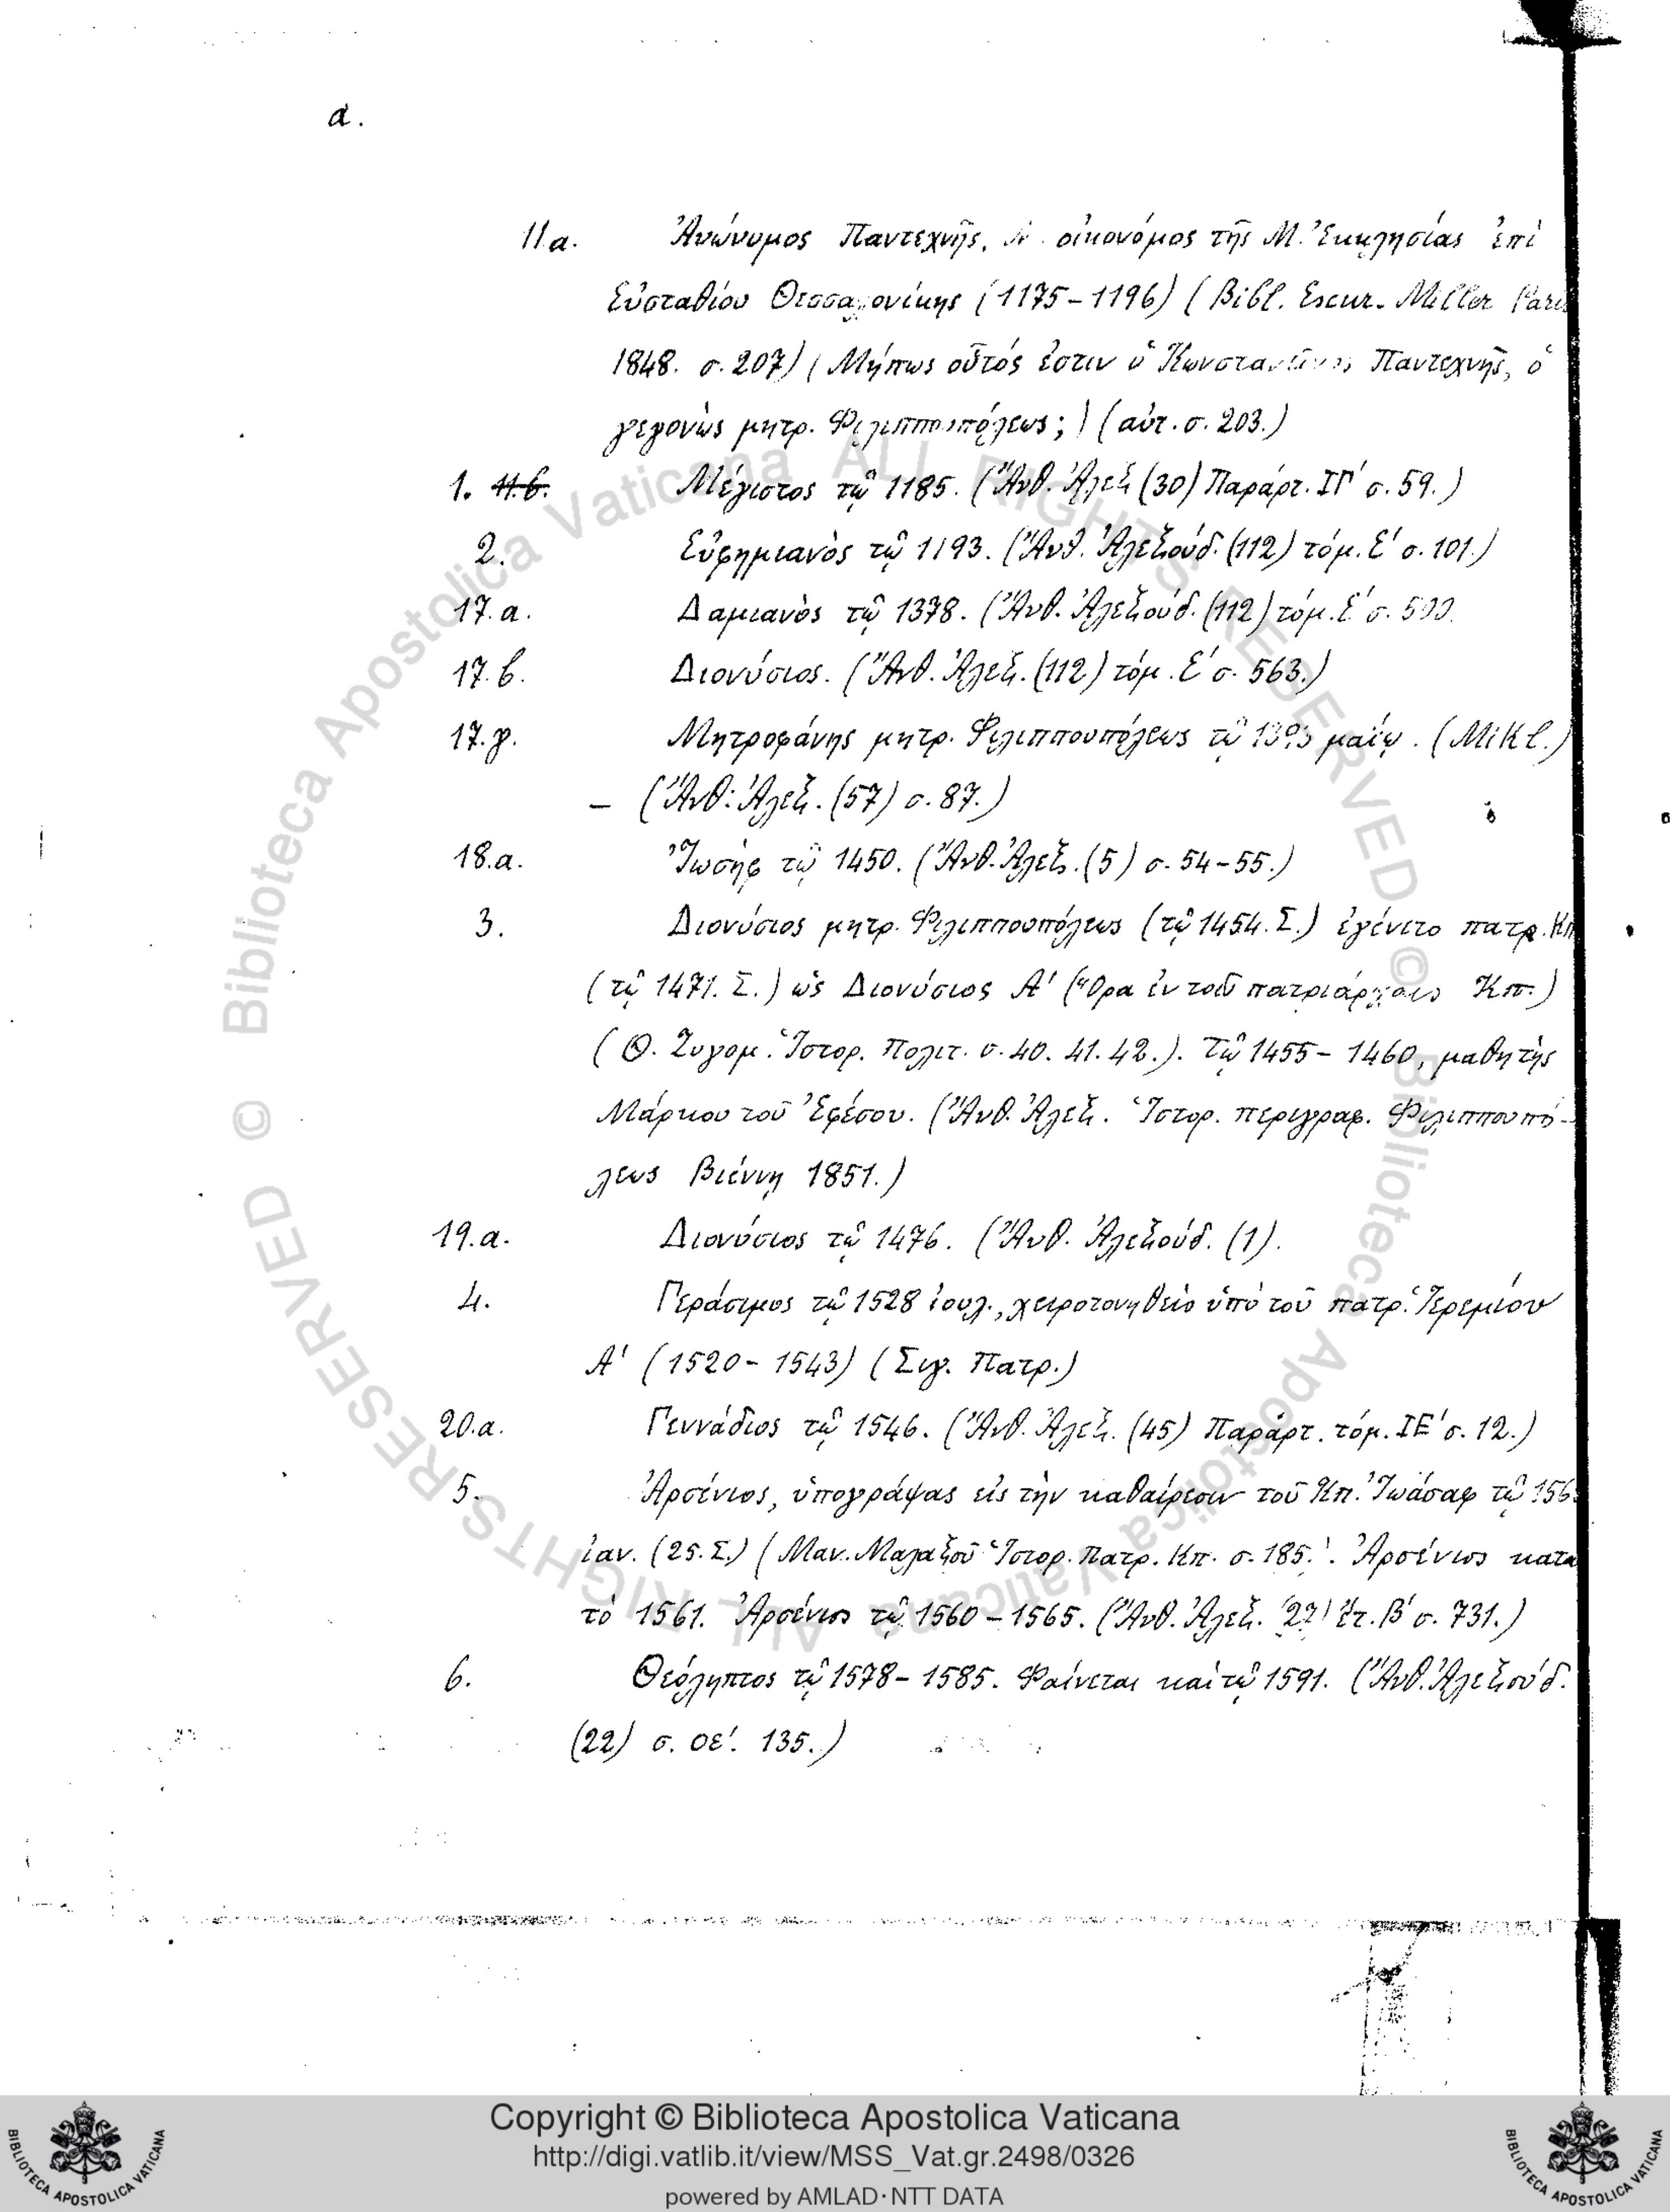 α.
11α. Ἀνώνυμος Παντεχνῆς, οἰκονόμος τῆς Μ. Ἐκκλησίας ἐπὶ
Εὐσταθίου Θεσσαλονίκης (1175-1196) (Bibl. Escur. Miller Paris
1848. σ. 207) (Μήπως οὗτός ἐστιν ὁ Κωνσταντῖνος Παντεχνῆς, ὁ
γεγονὼς μητρ. Φιλιππουπόλεως;) (αὐτ. σ. 203.)
1. 11.β. Μέγιστος τῷ 1185. (Ἄνθ. Ἀλεξ (30) Παράρτ. ΙΓ' σ. 59.)
2. Εὐφημιανὸς τῷ 1193. (Ἄνθ. Ἀλεξούδ. (112) τόμ. Ε' σ. 101.)
17.α. Δαμιανὸς τῷ 1378. (Ἄνθ. Ἀλεξούδ. (112) τόμ. Ε' σ.
17.β. Διονύσιος. (Ἄνθ. Ἀλεξ. (112) τόμ. Ε' σ. 563.)
17.γ. Μητροφάνης μητρ. Φιλιππουπόλεως τῷ μαΐῳ. (Mikl.)
– (Ἄνθ. Ἀλεξ. (57) σ. 87.)
18.α. Ἰωσὴφ τῷ 1450. (Ἄνθ. Ἀλεξ. (5) σ. 54-55.)
3. Διονύσιος μητρ. Φιλιππουπόλεως (τῷ 1454. Σ.) ἐγένετο πατρ. Κπ
(τῷ 1471. Σ.) ὡς Διονύσιος Α' (Ὅρα ἐν τοῖς πατριάρχαις Κπ.)
(Θ. Ζυγομ. Ἱστορ. Πολιτ. σ. 40. 41. 42.). Τῷ 1455-1460, μαθητὴς
Μάρκου τοῦ Ἐφέσου. (Ἄνθ. Ἀλεξ. Ἱστορ. περιγραφ. Φιλιππουπό-
λεως Βιέννῃ 1851.)
19.α. Διονύσιος τῷ 1476. (Ἄνθ. Ἀλεξούδ. (1).
4. Γεράσιμος τῷ 1528 ἰουλ., χειροτονηθεὶς ὑπὸ τοῦ πατρ. Ἱερεμίου
Α' (1520-1543) (Σιγ. Πατρ.)
20.α. Γεννάδιος τῷ 1546. (Ἄνθ. Ἀλεξ. (45) Παράρτ. τόμ. ΙΕ' σ. 12.)
5. Ἀρσένιος, ὑπογράψας εἰς τὴν καθαίρεσιν τοῦ Κπ. Ἰωάσαφ τῷ 156
ἰαν. (25. Σ.) (Μαν. Μαλαξοῦ Ἱστορ. Πατρ. Κπ. σ. 185.). Ἀρσένιος κατὰ
τὸ 1561. Ἀρσένιος τῷ 1560-1565. (Ἄνθ. Ἀλεξ. (27) ἔτ. Β' σ. 731.)
6. Θεόληπτος τῷ 1578-1585. Φαίνεται καὶ τῷ 1591. (Ἄνθ. Ἀλεξούδ.
(22) σ. οε'. 135.)
© Biblioteca Apostolica Vaticana ALL RIGHTS RESERVED © Biblioteca Apostolica Vaticana ALL RIGHTS RESERVED
Copyright © Biblioteca Apostolica Vaticana
http://digi.vatlib.it/view/MSS_Vat.gr.2498/0326
powered by AMLAD·NTT DATA
BIBLIOTECA APOSTOLICA VATICANA
BIBLIOTECA APOSTOLICA VATICANA